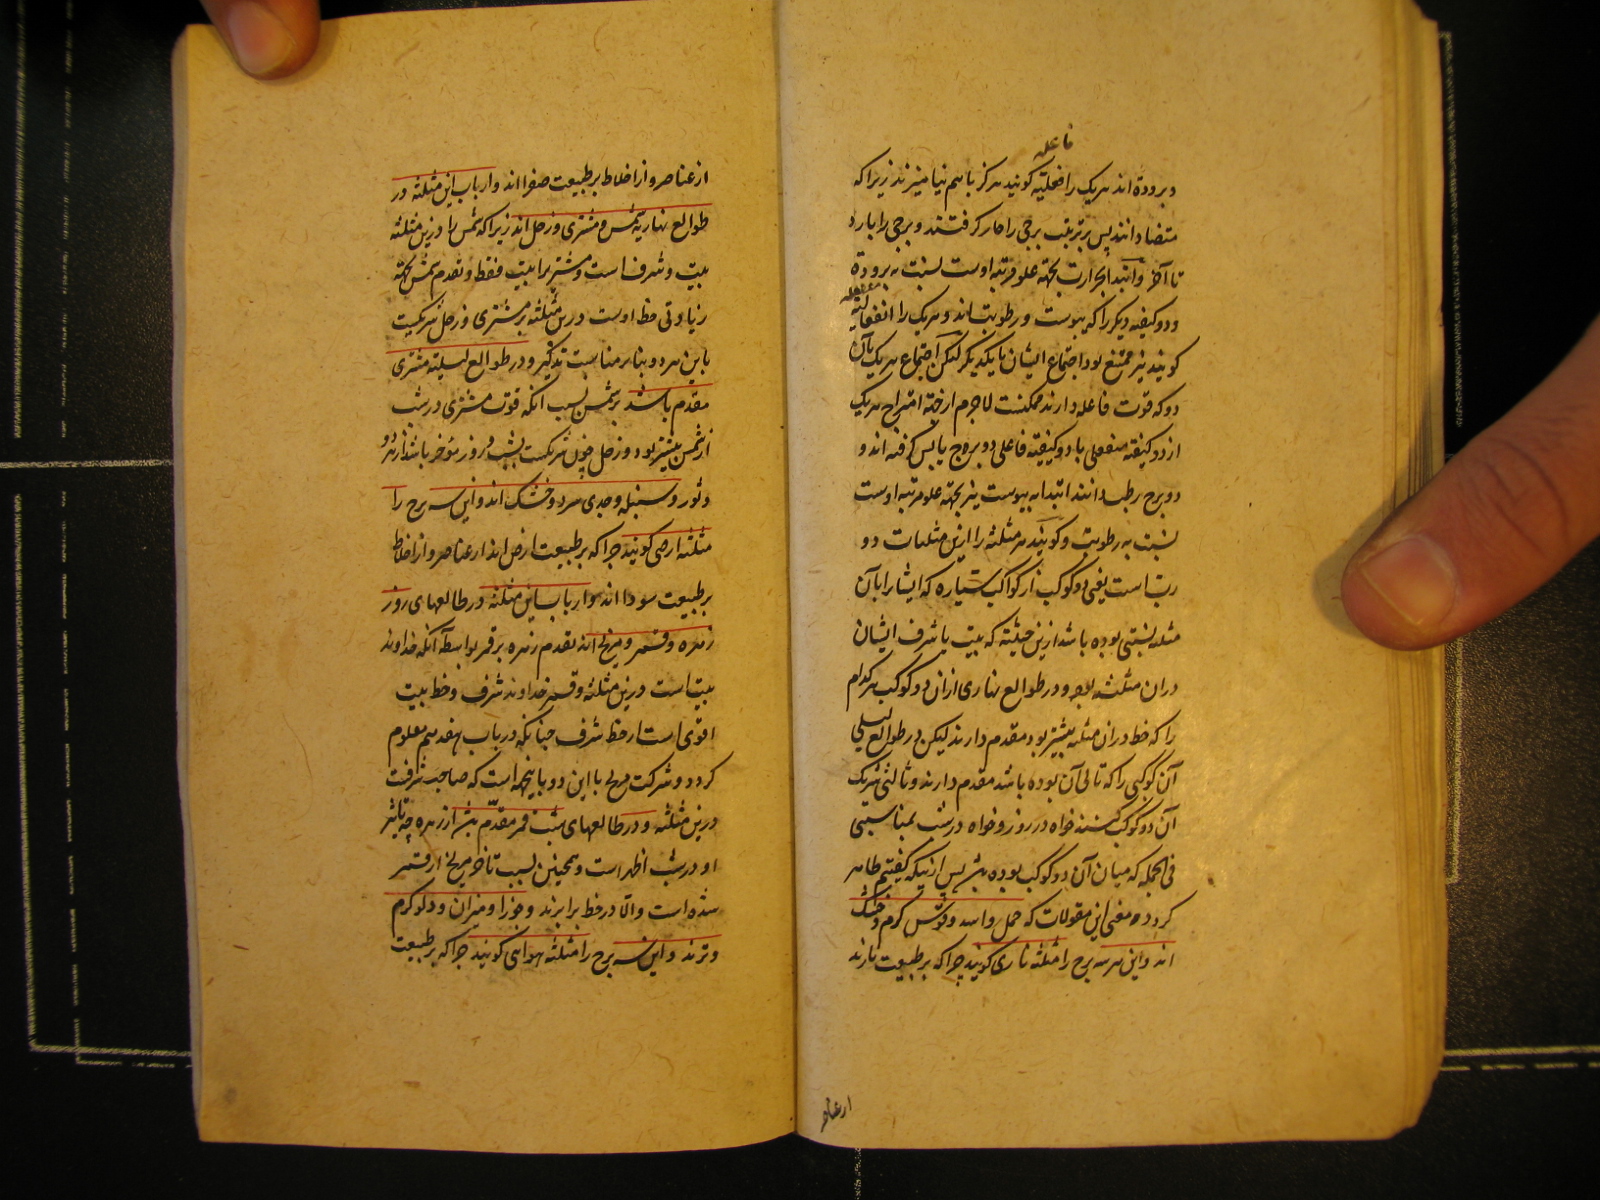 فاعله
و برودة اند هر یک را فعلیّه گویند هرگز با هم نیامیزند زیرا که
متضاد انند پس بر ترتیب برجی را حار گرفتند و برجی را بارد
تا آخر و ابتدا بحرارت بجهة علو مرتبه اوست نسبت به برودة
و دو کیفیه دیگر را که یبوست و رطوبت اند و هر یک را انفعالیه
منفعله
گویند نیز ممتنع بود اجتماع ایشان با یکدیگر لیکن اجتماع هر یک با آن
دو که قوت فاعله دارند ممکنست لاجرم از جهة امتزاج هر یک
از دو کیفیته منفعلی با دو کیفیته فاعلی دو بروج یابس گرفته اند و
دو برج رطب دانند ابتدا به یبوست نیز بجهة علو مرتبه اوست
نسبت به رطوبت و گویند هر مثلثه را ازین مثلثات دو
ربّ است یعنی دو کوکب از کواکب سیاره که ایشانرا بآن
مثلثه نسبتی بوده باشد ازین حیثیته که بیت یا شرف ایشان
دران مثلثه بود و در طوالع نهاری ازان دو کوکب هر کدام
را که حظ دران مثلثه بیشتر بود مقدم دارند لیکن در طوالع لیلی
آن کوکبی را که تالی آن بوده باشد مقدم دارند و ثالثی شریک
آن دو کوکب کنند خواه در روز و خواه در شب بمناسبتی
فی الجمله که میان آن دو کوکب بوده پس ازینکه گفتیم ظاهر
گردد معنی این مقولات که حمل و اسد و قوس گرم و خشک
اند و این هر سه برج را مثلثه ناری گویند چرا که بر طبیعت نارند
از عناصر
از عناصر و از اخلاط بر طبیعت صفرا اند و ارباب این مثلثه در
طوالع نهاریه شمس و مشتری و زحل اند زیرا که شمس را درین مثلثه
بیت و شرف است و مشتریرا بیت فقط و تقدم شمس بجهة
زیادتی حظ اوست درین مثلثه بر مشتری و زحل شرکیت
با این هر دو بنابر مناسبت تذکیر و در طوالع لیلیته مشتری
مقدم باشد بر شمس بسبب آنکه قوت مشتری در شب
از شمس بیشتر بود و زحل چون شریکست بشب و روز مؤخر باشد از هر دو
و ثور و سنبله و جدی سرد و خشک اند و این سه برج را
مثلثه ارضی گویند چرا که بر طبیعت ارض اند از عناصر و از اخلاط
بر طبیعت سودا اند و ارباب این مثلثه در طالعهای روز
زهره و قمر و مریخ اند تقدم زهره بر قمر بواسطه آنکه خداوند
بیت است درین مثلثه و قمر خداوند شرف و حظ بیت
اقوی است از حظ شرف چنانکه در باب هفدهم معلوم
گردد و شرکت مریخ با این دو باینجهة است که صاحب شرفست
درین مثلثه و در طالعهای شب قمر مقدّم از زهره چه تاثیر
او در شب اظهر است و همچنین بسبب تاخر مریخ از قمر
شده است والّا در حظ برابرند و جوزا و میزان و دلو گرم
و ترند و این سه برج را مثلثه هوایی گویند چرا که بر طبیعت